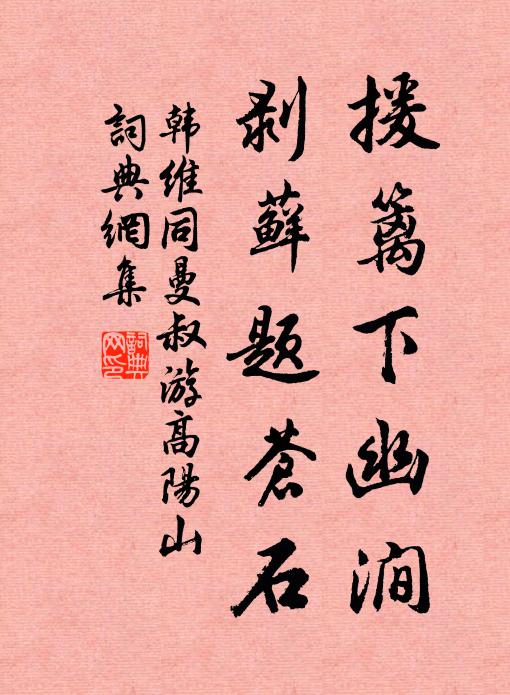 援篱下幽涧
剥藓题苍石
韩维同曼叔游高阳山
词典网集
词典网印